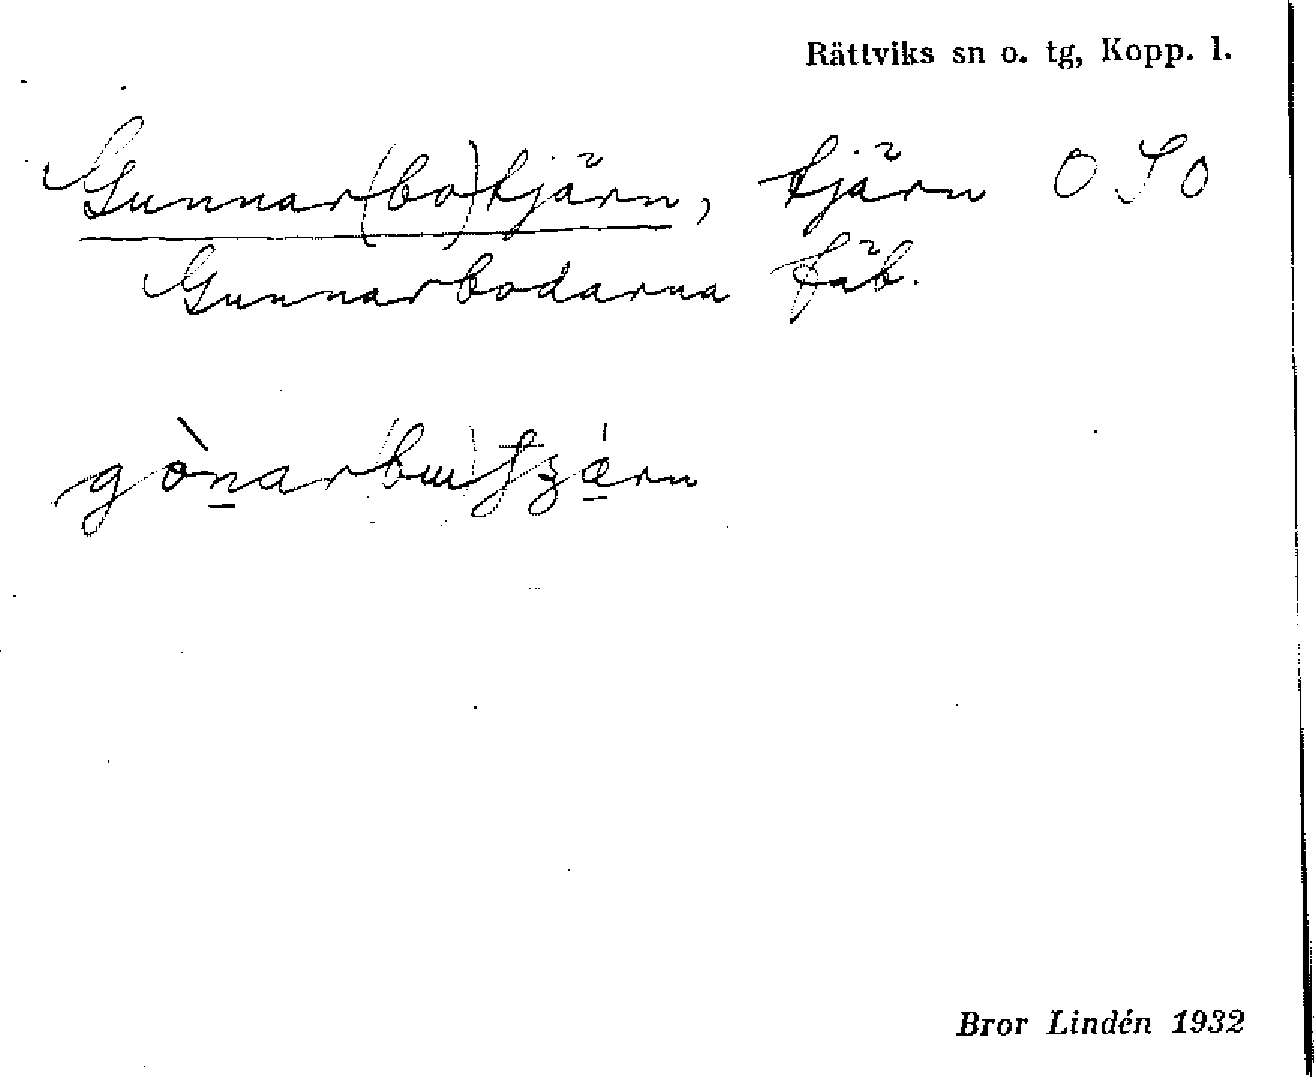 Rättviks sn o. tg, Kopp. l.
Gunnar(bo)tjärn, tjärn O S O
Gunnarbodarna fäb.
gònar(bɯ)
Bror Lindén 1932